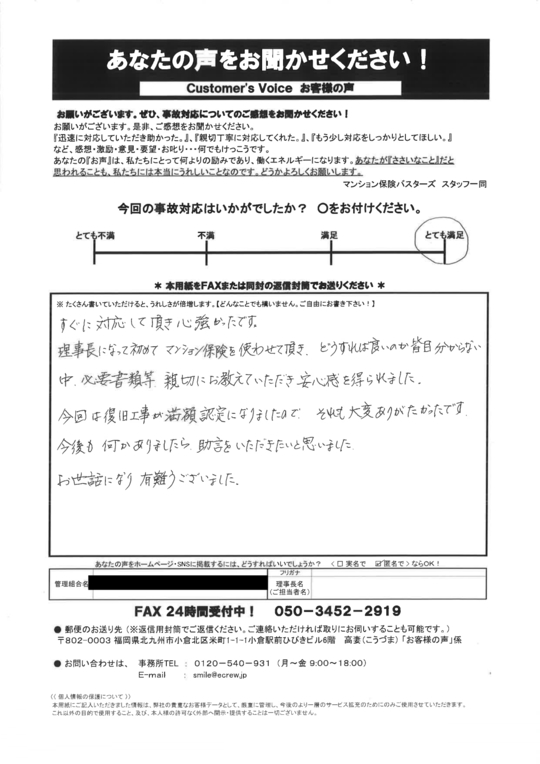 あなたの声をお聞かせください！
Customer's Voice お客様の声
お願いがございます。ぜひ、事故対応についてのご感想をお聞かせください！
お願いがございます。是非、ご感想をお聞かせください。
『迅速に対応していただき助かった。』、『親切丁寧に対応してくれた。』、『もう少し対応をしっかりとしてほしい。』
など、感想・激励・意見・要望・お叱り・・・何でもけっこうです。
あなたの『お声』は、私たちにとって何よりの励みであり、働くエネルギーになります。あなたが『ささいなこと』だと
思われることも、私たちには本当にうれしいことなのです。どうかよろしくお願いします。
マンション保険バスターズ スタッフ一同
今回の事故対応はいかがでしたか？ ○をお付けください。
とても不満 不満 満足 とても満足
＊ 本用紙をFAXまたは同封の返信封筒でお送りください ＊
※ たくさん書いていただけると、うれしさが倍増します。【どんなことでも構いません。ご自由にお書き下さい！】
すぐに対応して頂き心強かったです。
理事長になって初めてマンション保険を使わせて頂き、どうすれば良いのか皆目分からない
中、必要書類等、親切にお教えていただき安心感を得られました。
今回は復旧工事が満額認定になりましたので、それも大変ありがたかったです。
今後も何かありましたら、助言をいただきたいと思いました。
お世話になり有難うございました。
あなたの声をホームページ・SNSに掲載するには、どうすればいいでしょうか？ （ □ 実名で ☑ 匿名で ）ならOK！
管理組合名
フリガナ
理事長名
（ご担当者名）
FAX 24時間受付中！ 050-3452-2919
● 郵便のお送り先 （※返信用封筒でご返信ください。ご連絡いただければ取りにお伺いすることも可能です。）
〒802-0003 福岡県北九州市小倉北区米町1-1-1小倉駅前ひびきビル6階 高妻（こうづま）「お客様の声」係
● お問い合わせは、 事務所TEL ： 0120-540-931 （月～金 9:00～18:00）
E-mail ： smile@ecrew.jp
（（ 個人情報の保護について ））
本用紙にご記入いただきました情報は、弊社の貴重なお客様データとして、厳重に管理し、今後のより一層のサービス拡充のためにのみご使用させていただきます。
これ以外の目的で使用すること、及び、本人様の許可なく外部へ開示・提供することは一切ございません。